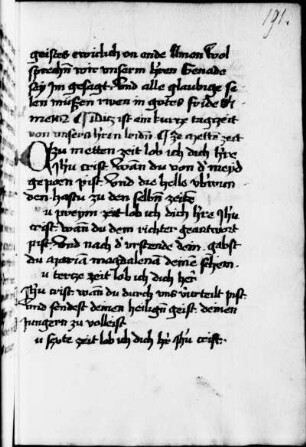 191.
geistes ewiclich on ende Amen Wol
sprechn wir unserm hren Genade
sey Im gesagt. Und alle glaubige se
len müssen rwen in gotes fride A
men Ditz ist ein kurtz tagzeit
von unsers hren leidn Ze mettn zeit
Zu metten zeit lob ich dich hre
Jhu crist. wann du von d' meyd
geporn pist. Und die helle
den hastu zu den selbn zeite
u preym zeit lob ich dich hre Jhu
crist. wann du dem richter geantwort
pist. Und nach d' urstende dein. gabst
du maria magdalena deine schein.
u tercze zeit lob ich dich her
Jhu crist. wann du durch uns vurteilt pist.
und sendest deinen heilign geist. deinen
Jungern zu volleist
u sexte zeit lob ich dich hre Jhu crist.